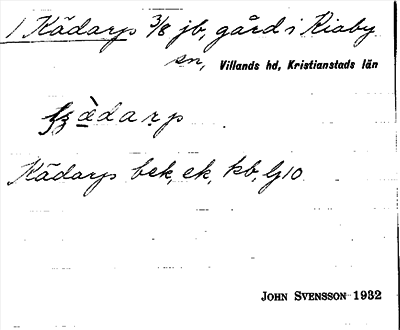 1 Kädarp 3/8 jb, gård i Kiaby
sn, Villands hd, Kristianstads län
àdarp
Kädarp bek, ek, kb, lj 10
JOHN SVENSSON 1932